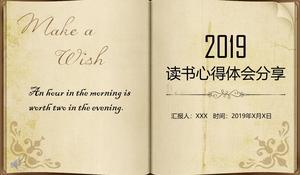 Make a
Wish
An hour in the morning is
worth two in the evening.
2019
读书心得体会分享
汇报人：XXX 时间：2019年X月X日